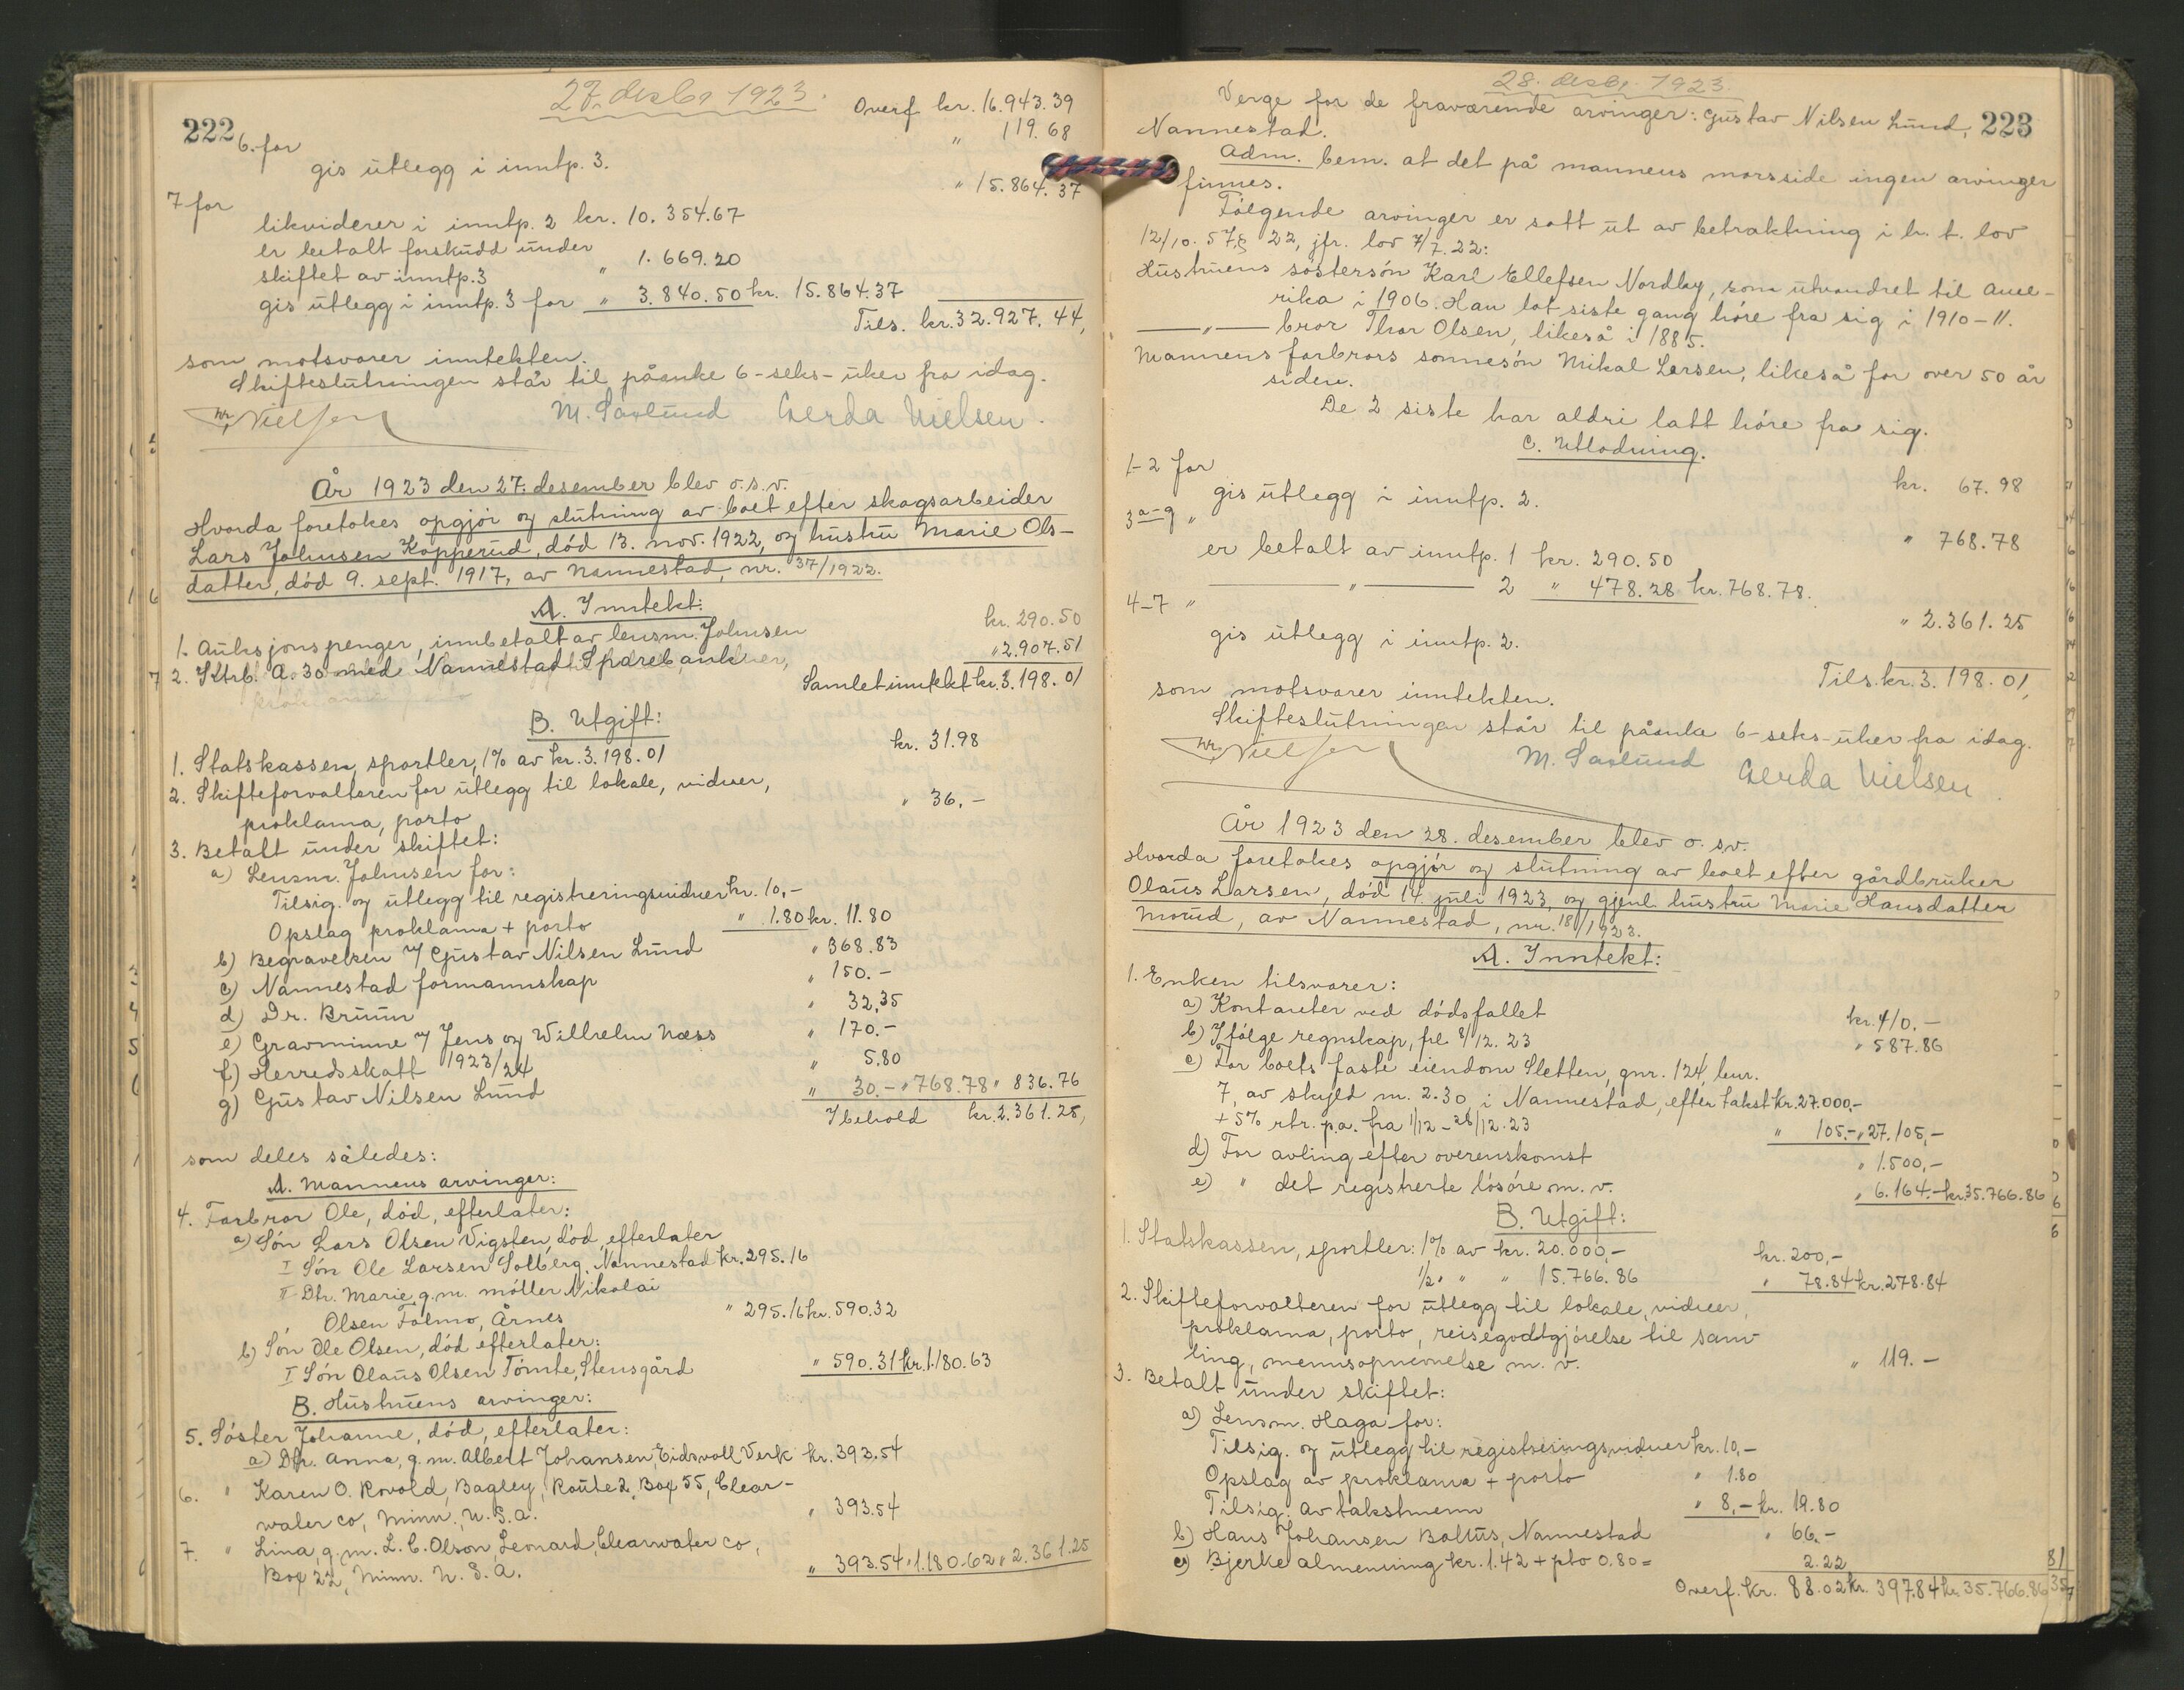 27. desbr 1923.
222
Overf. kr. 16.943.39
6. for
" 119.68
gis utlegg i inntp. 3.
7 for
" 15.864.37
likviderer i inntp. 2 kr. 10.354.67
er betalt forskudd under
skiftet av inntp. 3 " 1.669.20
gis utlegg i inntp. 3 for " 3.840.50 kr. 15.864.37
Tils. kr. 32.927.44,
som motsvarer inntekten.
Skifteslutningen står til påanke 6-seks-uker fra idag.
Nielsen M. Saxlund Gerda Nielsen.
År 1923 den 27. desember blev o.s.v.
Hvorda foretokes opgjór og slutning av boet efter skogsarbeider
Lars Johnsen Kopperud, dód 13. nov. 1922, og hustru Marie Ols-
datter, dód 9. sept. 1917, av Nannestad, nr. 37/1922.
A. Inntekt:
1. Auksjonspenger, innbetalt av lensm. Johnsen kr. 290.50
2. Ktrb. A. 30 med Nannestad Sparebank " 2.907.51
Samlet inntekt kr. 3.198.01
B. Utgift:
1. Statskassen, sportler, 1% av kr. 3.198.01 kr. 31.98
2. Skifteforvalteren for utlegg til lokale, vidner,
proklama, porto " 36.-
3. Betalt under skiftet:
a) Lensm. Johnsen for:
Tilsig. og utlegg til registreringsvidner kr. 10,-
Opslag proklama + porto " 1.80 kr. 11.80
b) Begravelsen v/ Gustav Nilsen Lund " 368.83
c) Nannestad formannskap " 150.-
d) Dr. Bruun " 32,35
e) Gravminne v/ Jens og Wilhelm Næss " 170.-
f) Herredsskatt 1923/24 " 5.80
g) Gustav Nilsen Lund " 30.- " 768.78 " 836.76
I behold kr. 2.361.25,
som deles således:
A. Mannens arvinger:
4. Farbror Ole, dód, efterlater:
a) Són Lars Olsen Vigsten, dód, efterlater
I Són Ole Larsen Solberg, Nannestad kr. 295.16
II Dtr. Marie, g.m. móller Nikolai
Olsen Folmo, Årnes " 295.16 kr. 590.32
b) Són Ole Olsen, dód efterlater:
I Són Olaus Olsen Tómte, Stensgård " 590.31 kr. 1.180.63
B. Hustruens arvinger:
5. Sóster Johanne, dód, efterlater:
a) Dtr. Anna, g.m. Albert Johansen, Eidsvoll Verk kr. 393.54
6. " Karen O. Rovold, Bagley, Route 2, Box 55, Clear-
water co, Minn., U.S.A. " 393.54
7. " Lina, g.m. L.C. Olson, Leonard, Clearwater co,
Box 22, Minn. U.S.A. " 393.54 " 1.180.62 " 2.361.25
28. desbr. 1923.
223
Verge for de fraværende arvinger: Gustav Nilsen Lund,
Nannestad.
Adm. bem. at det på mannens morsside ingen arvinger
finnes.
Fólgende arvinger er satt ut av betraktning i h. t. lov
12/10. 57 § 22, jfr. lov 7/7. 22:
Hustruens sóstersón Karl Ellefsen Nordby, som utvandret til Ame-
rika i 1906. Han lot siste gang hóre fra sig i 1910-11.
— " — bror Thor Olsen, likeså i 1885.
Mannens farbrors sonnesón Mikal Larsen, likeså for over 50 år
siden.
De 2 siste har aldri latt hóre fra sig.
C. Utlodning.
1-2 for kr. 67.98
gis utlegg i inntp. 2.
3a-g " " 768.78
er betalt av inntp. 1 kr. 290.50
— " — 2 " 478.28 kr. 768.78.
4-7 " " 2.361.25
gis utlegg i inntp. 2.
Tils. kr. 3.198.01,
som motsvarer inntekten.
Skifteslutningen står til påanke 6-seks-uker fra idag.
Nielsen M. Saxlund Gerda Nielsen
År 1923 den 28. desember blev o.s.v.
Hvorda foretokes opgjór og slutning av boet efter gårdbruker
Olaus Larsen, dód 14. juli 1923, og gjenl. hustru Marie Hansdatter
Morud, av Nannestad, nr. 18/1923.
A. Inntekt:
1. Enken tilsvarer:
a) Kontanter ved dódsfallet kr. 410.-
b) Ifólge regnskap, frl. 8/12. 23 " 587.86
c) For boets faste eiendom Sletten, gnr. 124, bnr.
7, av skyld m. 2.30 i Nannestad, efter takst kr. 27.000,-
+ 5% rtr. p.a. fra 1/12 - 28/12. 23 " 105.- " 27.105,-
d) For avling efter overenskomst " 1.500,-
e) " det registrerte lósóre m. v. " 6.164.- kr. 35.766.86
B. Utgift:
1. Statskassen, sportler: 1% av kr. 20.000,- kr. 200,-
1/2 " " " 15.766.86 " 78.84 kr. 278.84
2. Skifteforvalteren for utlegg til lokale, vidner,
proklama, porto, reisegodtgjórelse til sam-
ling, mennsopnevnelse m. v. " 119.-
3. Betalt under skiftet:
a) Lensm. Haga for:
Tilsig. og utlegg til registreringsvidner kr. 10,-
Opslag av proklama + porto " 1.80
Tilsig. av takstmenn " 8,- kr. 19.80
b) Hans Johansen Baltus, Nannestad " 66.-
c) Bjerke almenning kr. 1.42 + pto 0.80 = 2.22
Overf. kr. 88.02 kr. 397.84 kr. 35.766.86